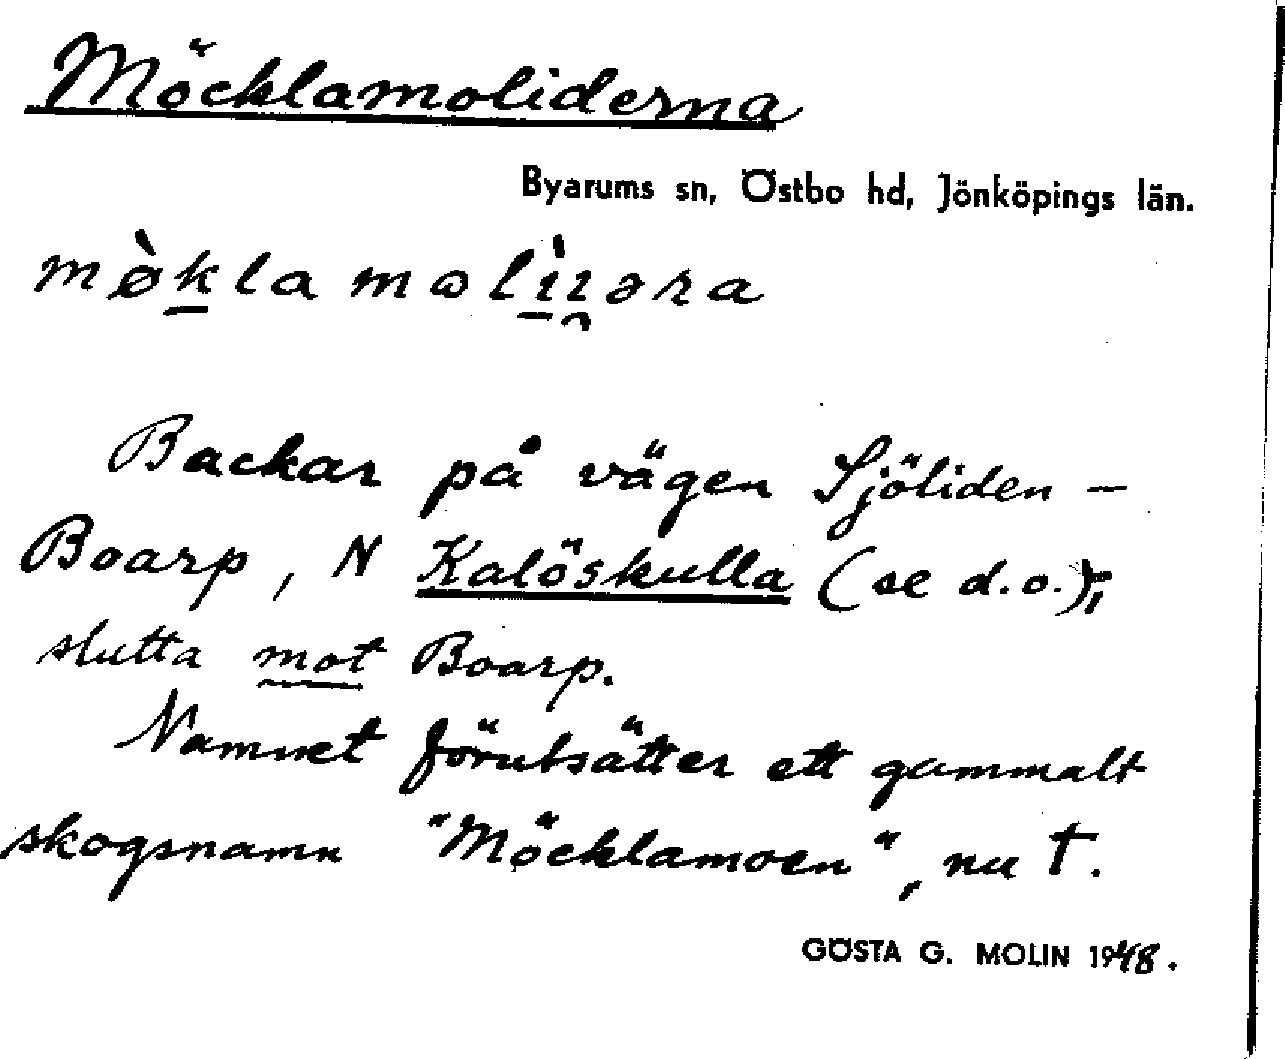 Möcklamoliderna
Byarums sn, Östbo hd, Jönköpings län.
Backar på vägen Sjöliden –
Boarp, N Kalöskulla (se d.o.);
slutta mot Boarp.
Namnet förutsätter ett gammalt
skogsnamn "Möcklamoen", nu †.
GÖSTA G. MOLIN 1948.